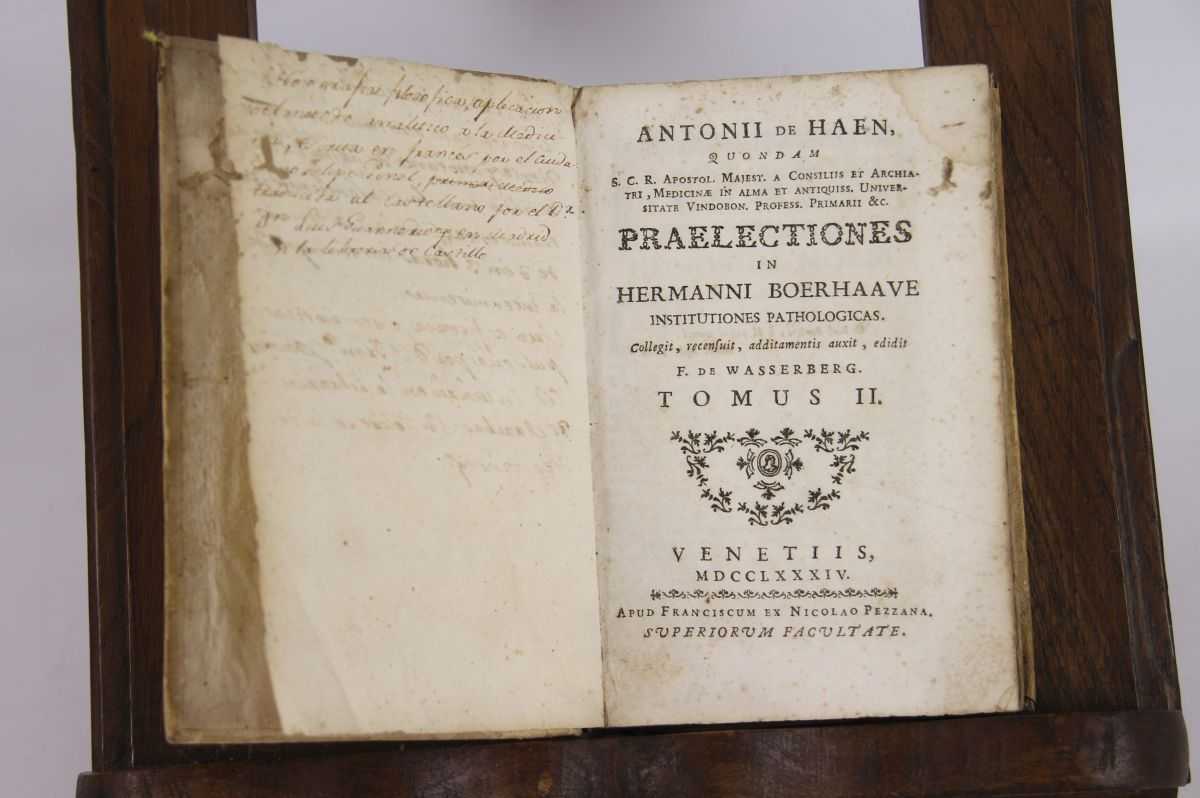 Nosografia filosofica, aplicacion
del metodo analitico a la Medici
na, escrita en frances por el Ciuda
no Felipe Pinel,
traducida al castellano por el Dr.
en Madrid
la libreria de Castillo
ANTONII DE HAEN,
QUONDAM
S. C. R. APOSTOL. MAJEST. A CONSILIIS ET ARCHIA-
TRI, MEDICINÆ IN ALMA ET ANTIQUISS. UNIVER-
SITATE VINDOBON. PROFESS. PRIMARII &c.
PRAELECTIONES
IN
HERMANNI BOERHAAVE
INSTITUTIONES PATHOLOGICAS.
Collegit, recensuit, additamentis auxit, edidit
F. DE WASSERBERG.
TOMUS II.
VENETIIS,
MDCCLXXXIV.
APUD FRANCISCUM EX NICOLAO PEZZANA.
SVPERIORVM FACVLTATE.